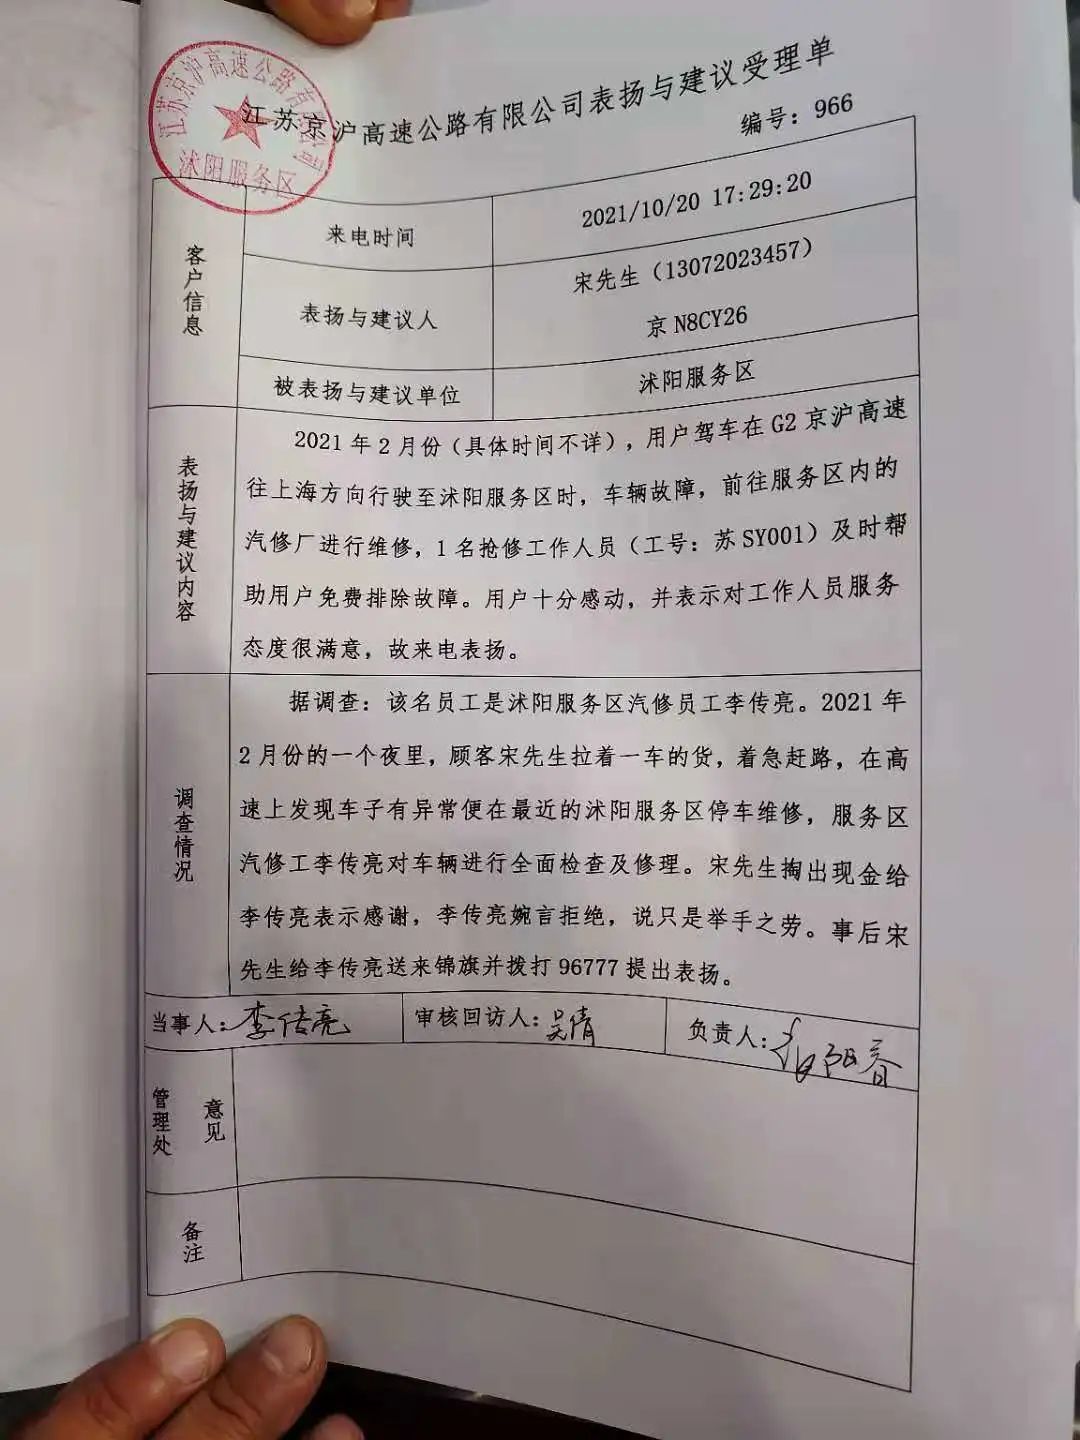 江苏京沪高速公路有限公司
沭阳服务区
江苏京沪高速公路有限公司表扬与建议受理单
编号：966
客户信息
来电时间
2021/10/20 17:29:20
表扬与建议人
宋先生（13072023457）
京 N8CY26
被表扬与建议单位
沭阳服务区
表扬与建议内容
2021 年 2 月份（具体时间不详），用户驾车在 G2 京沪高速
往上海方向行驶至沭阳服务区时，车辆故障，前往服务区内的
汽修厂进行维修，1 名抢修工作人员（工号：苏 SY001）及时帮
助用户免费排除故障。用户十分感动，并表示对工作人员服务
态度很满意，故来电表扬。
调查情况
据调查：该名员工是沭阳服务区汽修员工李传亮。2021 年
2 月份的一个夜里，顾客宋先生拉着一车的货，着急赶路，在高
速上发现车子有异常便在最近的沭阳服务区停车维修，服务区
汽修工李传亮对车辆进行全面检查及修理。宋先生掏出现金给
李传亮表示感谢，李传亮婉言拒绝，说只是举手之劳。事后宋
先生给李传亮送来锦旗并拨打 96777 提出表扬。
当事人：李传亮
审核回访人：吴倩
负责人：
管理处意见
备注